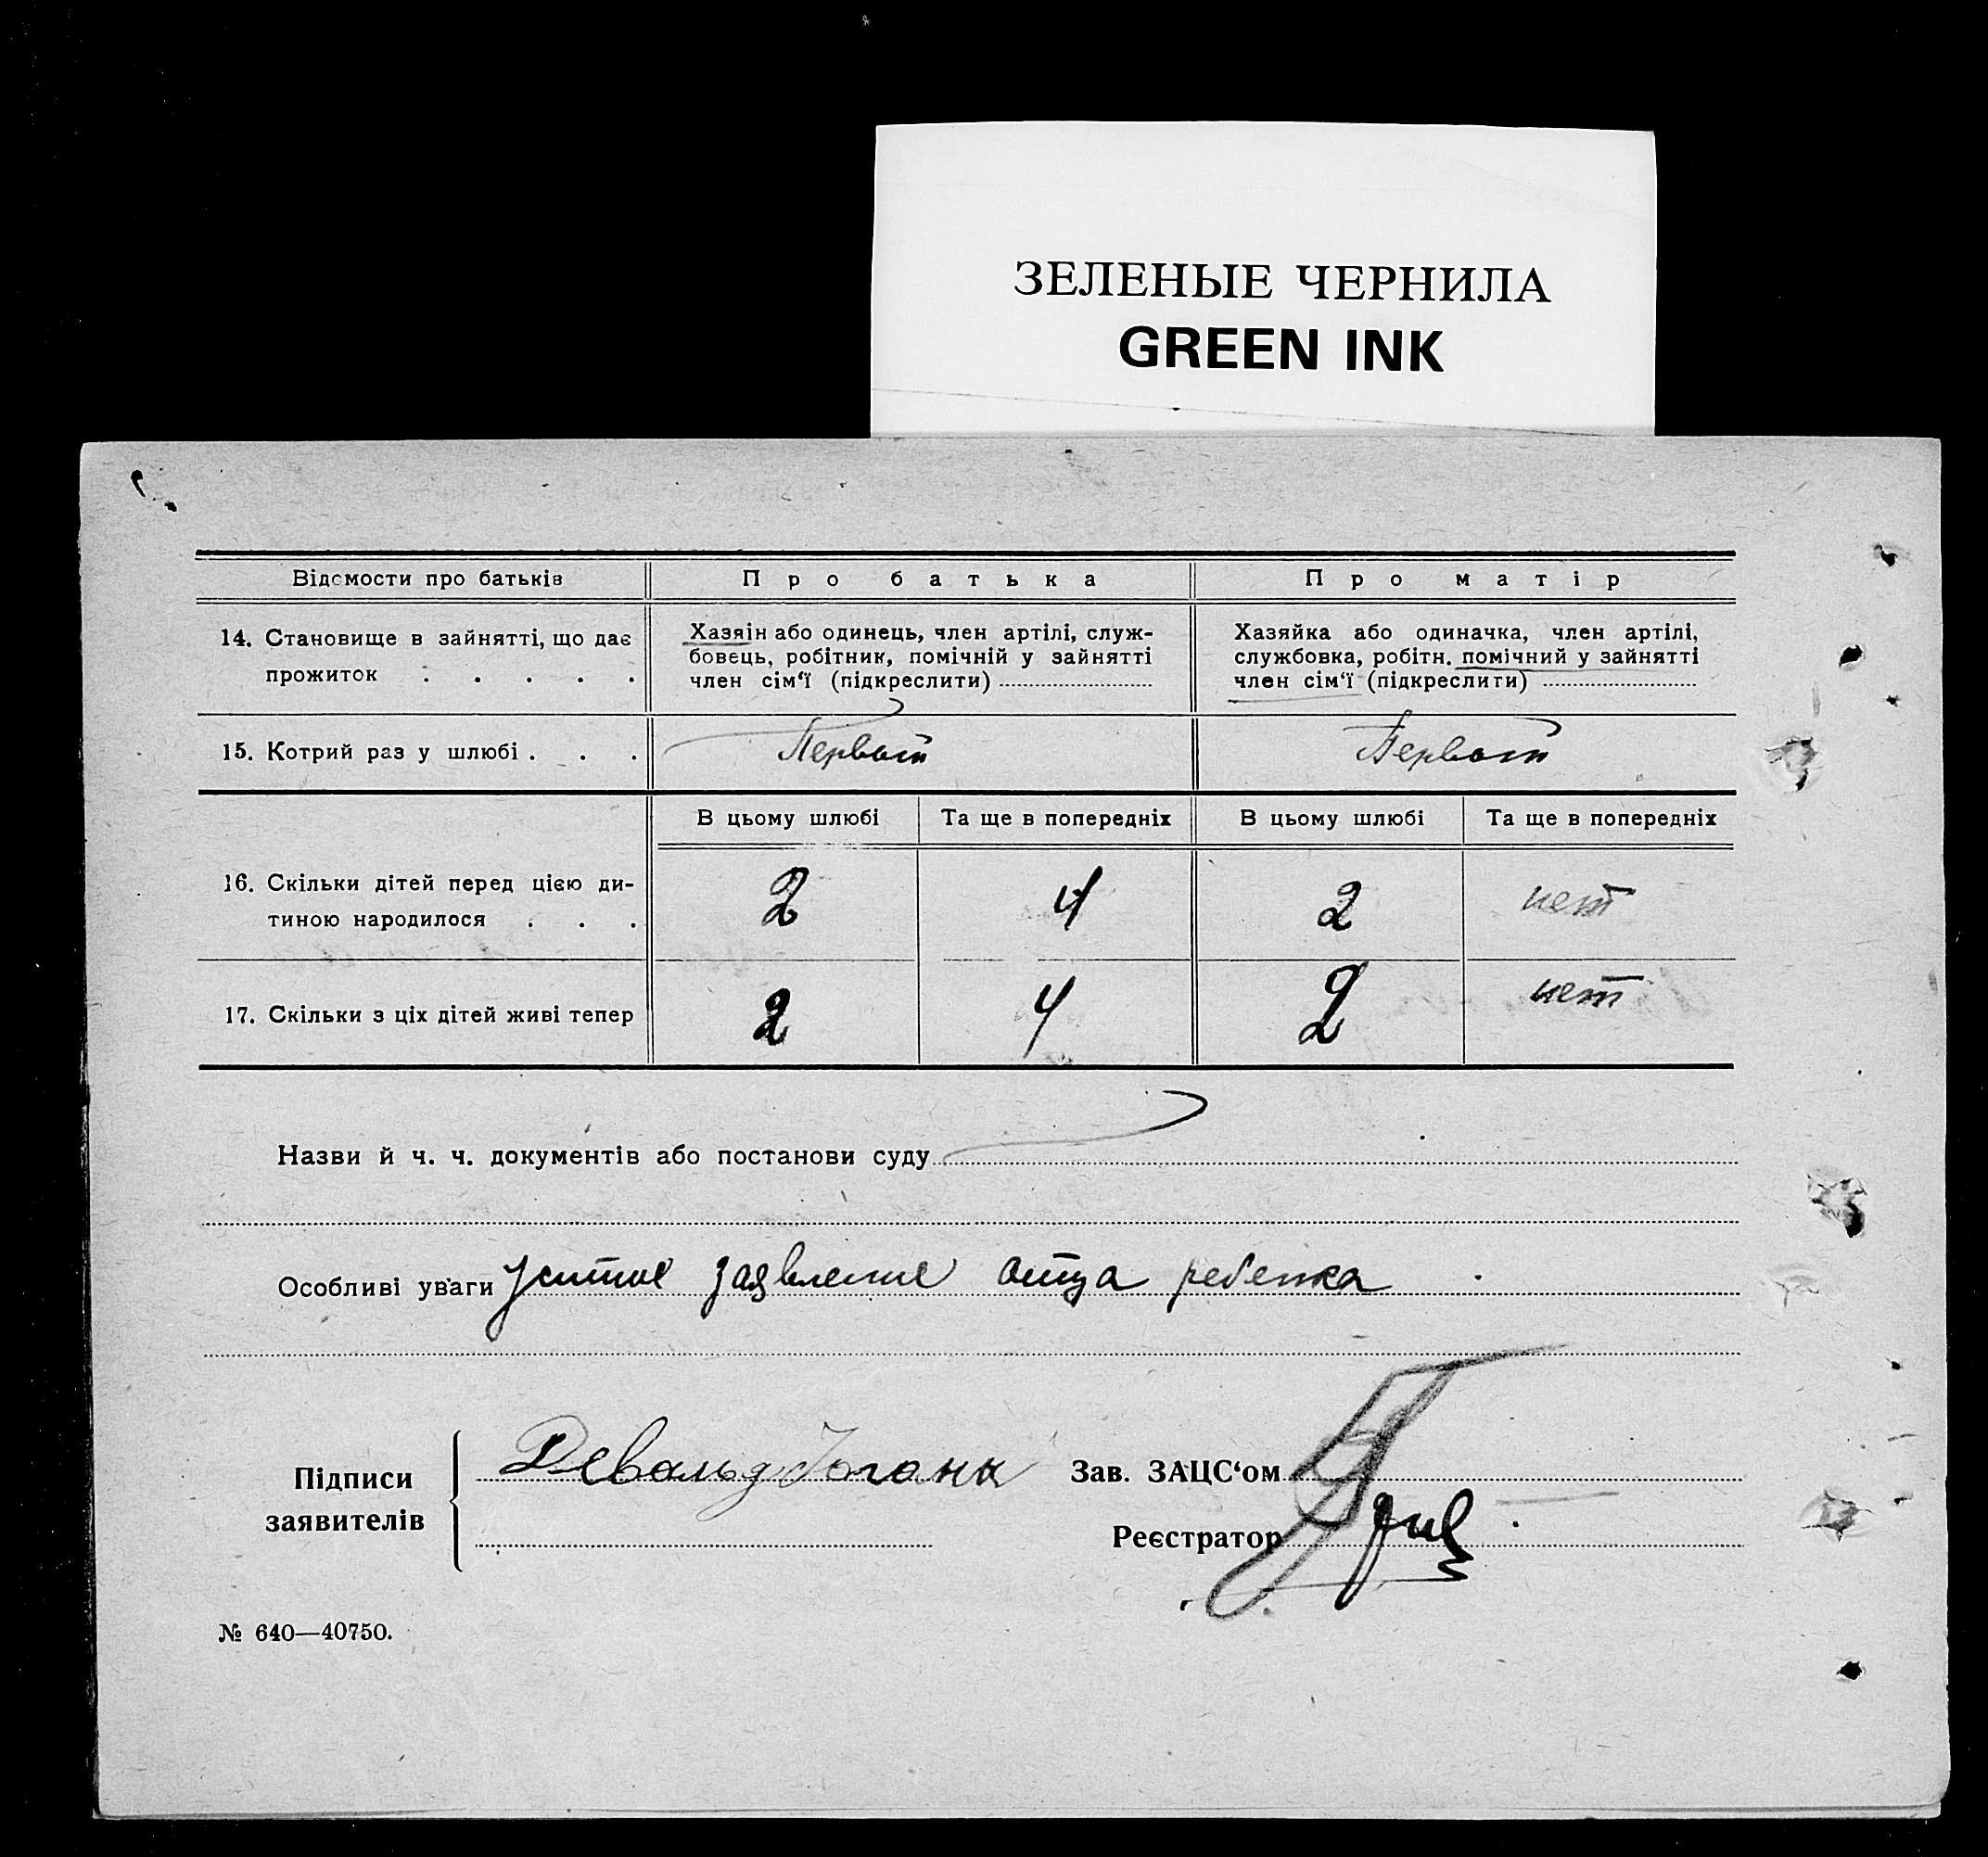 ЗЕЛЕНЫЕ ЧЕРНИЛА
GREEN INK
Відомости про батьків Про батька Про матір
14. Становище в зайнятті, що дає
прожиток . . . . .
Хазяін або одинець, член артілі, служ-
бовець, робітник, помічній у зайнятті
член сім‘ї (підкреслити)
Хазяйка або одиначка, член артілі,
службовка, робітн. помічний у зайнятті
член сім‘ї (підкреслити)
15. Котрий раз у шлюбі . . . Первый Первый
В цьому шлюбі Та ще в попередніх В цьому шлюбі Та ще в попередніх
16. Скільки дітей перед цією ди-
тиною народилося . . .
2 4 2 нет
17. Скільки з ціх дітей живі тепер 2 4 2 нет
Назви й ч. ч. документів або постанови суду
Особливі уваги Устное заявление отца ребенка
Підписи
заявителів
Девальд Иоганн
Зав. ЗАЦС‘ом
Реєстратор
№ 640—40750.